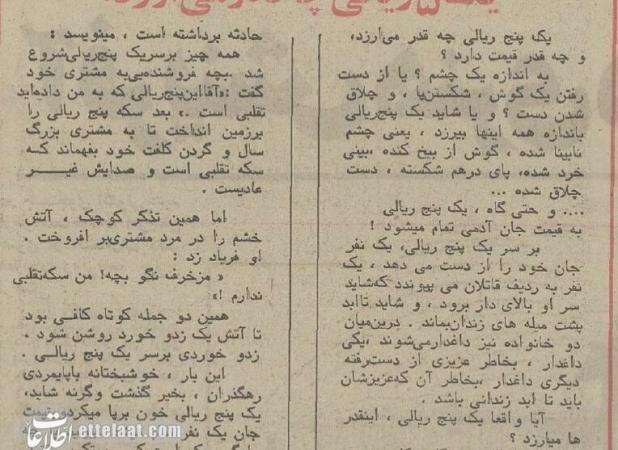 یک پنج ریالی چه قدر می‌ارزد،
و چه قدر قیمت دارد ؟
به اندازه یک چشم ؟ یا از دست
رفتن یک گوش ، شکستن‌پا ، و چلاق
شدن دست ؟ و یا شاید یک پنج‌ریالی
باندازه همه اینها بیرزد ، یعنی چشم
نابینا شده ، گوش از بیخ کنده ،بینی
خرد شده، پای درهم شکسته ، دست
چلاق شده ...
.... و حتی گاه ، یک پنج ریالی
به قیمت جان آدمی تمام میشود !
بر سر یک پنج ریالی، یک نفر
جان خود را از دست می دهد ، یک
نفر به ردیف قاتلان می پیوندد که‌شاید
سر او بالای دار برود ، و شاید تاابد
پشت میله های زندان‌بماند . درین‌میان
دو خانواده نیز داغدار‌می‌شوند ،یکی
داغدار ، بخاطر عزیزی از دست‌رفته
دیگری داغدار ،بخاطر آن که‌عزیزشان
باید تا ابد زندانی باشد .
آیا واقعا یک پنج ریالی ، اینقدر
ها میارزد ؟
حادثه برداشته است ، مینویسد :
همه چیز برسریک پنج‌ریالی‌شروع
شد .بچه فروشنده‌یی‌به مشتری خود
گفت :«آقااین‌پنج‌ریالی‌که به من داده‌اید
تقلبی است .» بعد سکه پنج ریالی را
برزمین انداخت تا به مشتری بزرگ
سال و گردن کلفت خود بفهماند کـه
سکه تقلبی است و صدایش غیـــر
عادیست .
اما همین تذکر کوچک ، آتش
خشم را در مرد مشتری‌بر افروخت .
او فریاد زد :
« مزخرف نگو بچه! من سکه‌تقلبی
ندارم !»
همین دو جمله کوتاه کافـی بود
تا آتش یک زدو خورد روشن شود .
زدو خوردی برسر یک پنج ریالـی .
این بار ، خوشبختانه باپایمردی
رهگذران ، بخیر گذشت وگرنه شاید،
یک پنج ریالی خون برپا میکردوقیمت
جان یک نفر
ettelaat.com
اطلاعات